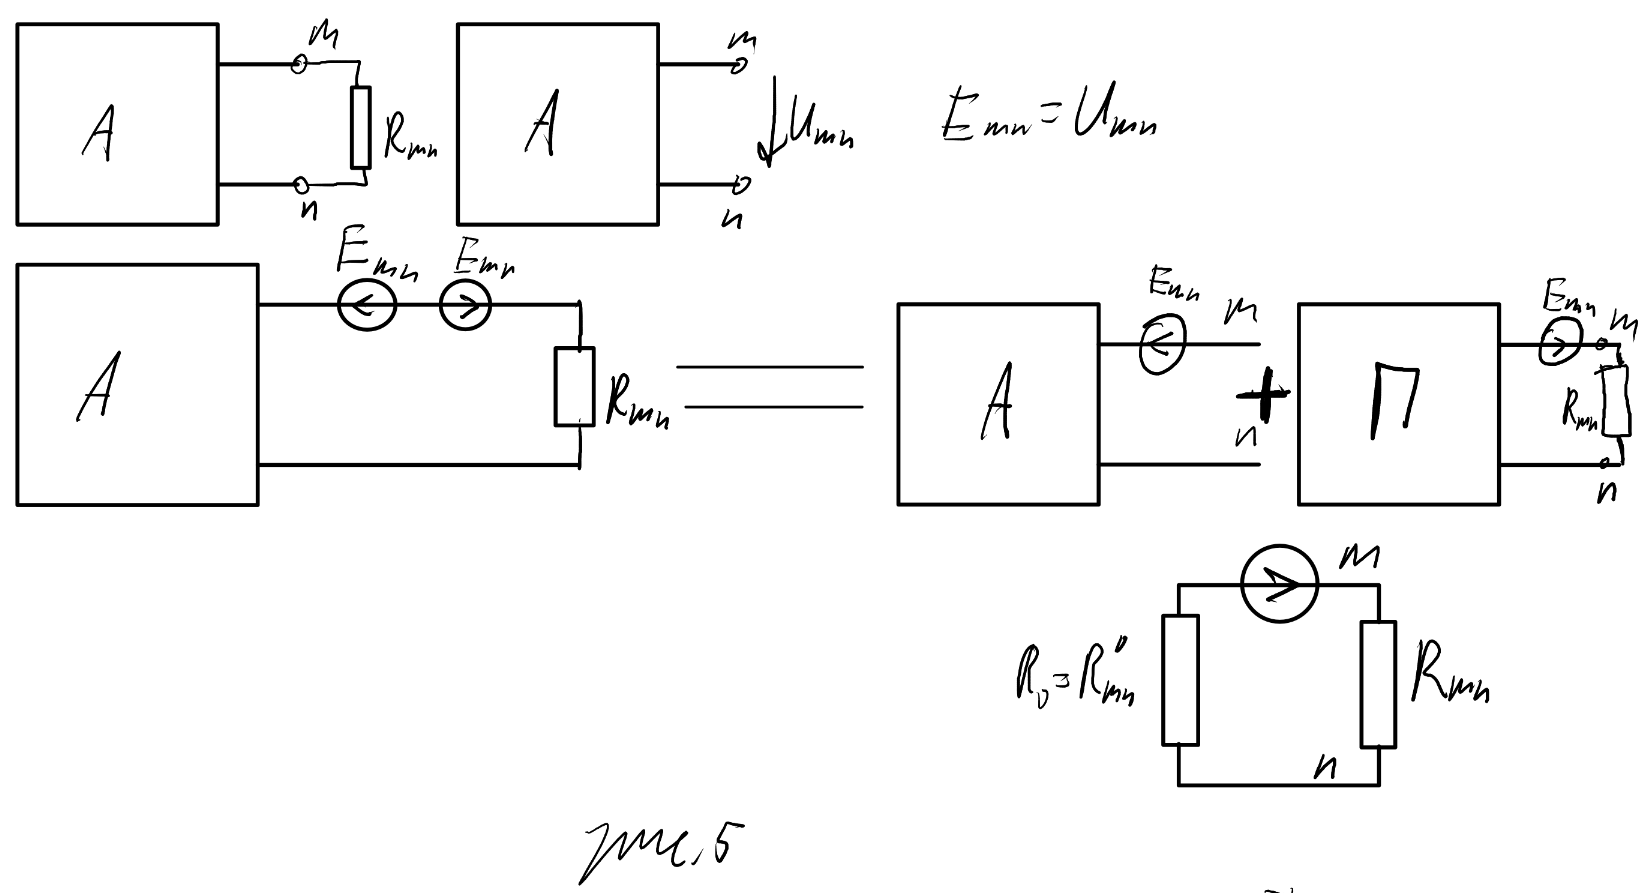 A
m
R_mn
n
A
m
U_mn
n
E_mn = U_mn
A
E_mn
E_mn
R_mn
A
E_mn
m
+
n
П
E_mn
m
R_mn
n
m
R_0 = R''_mn
R_mn
n
рис. 5